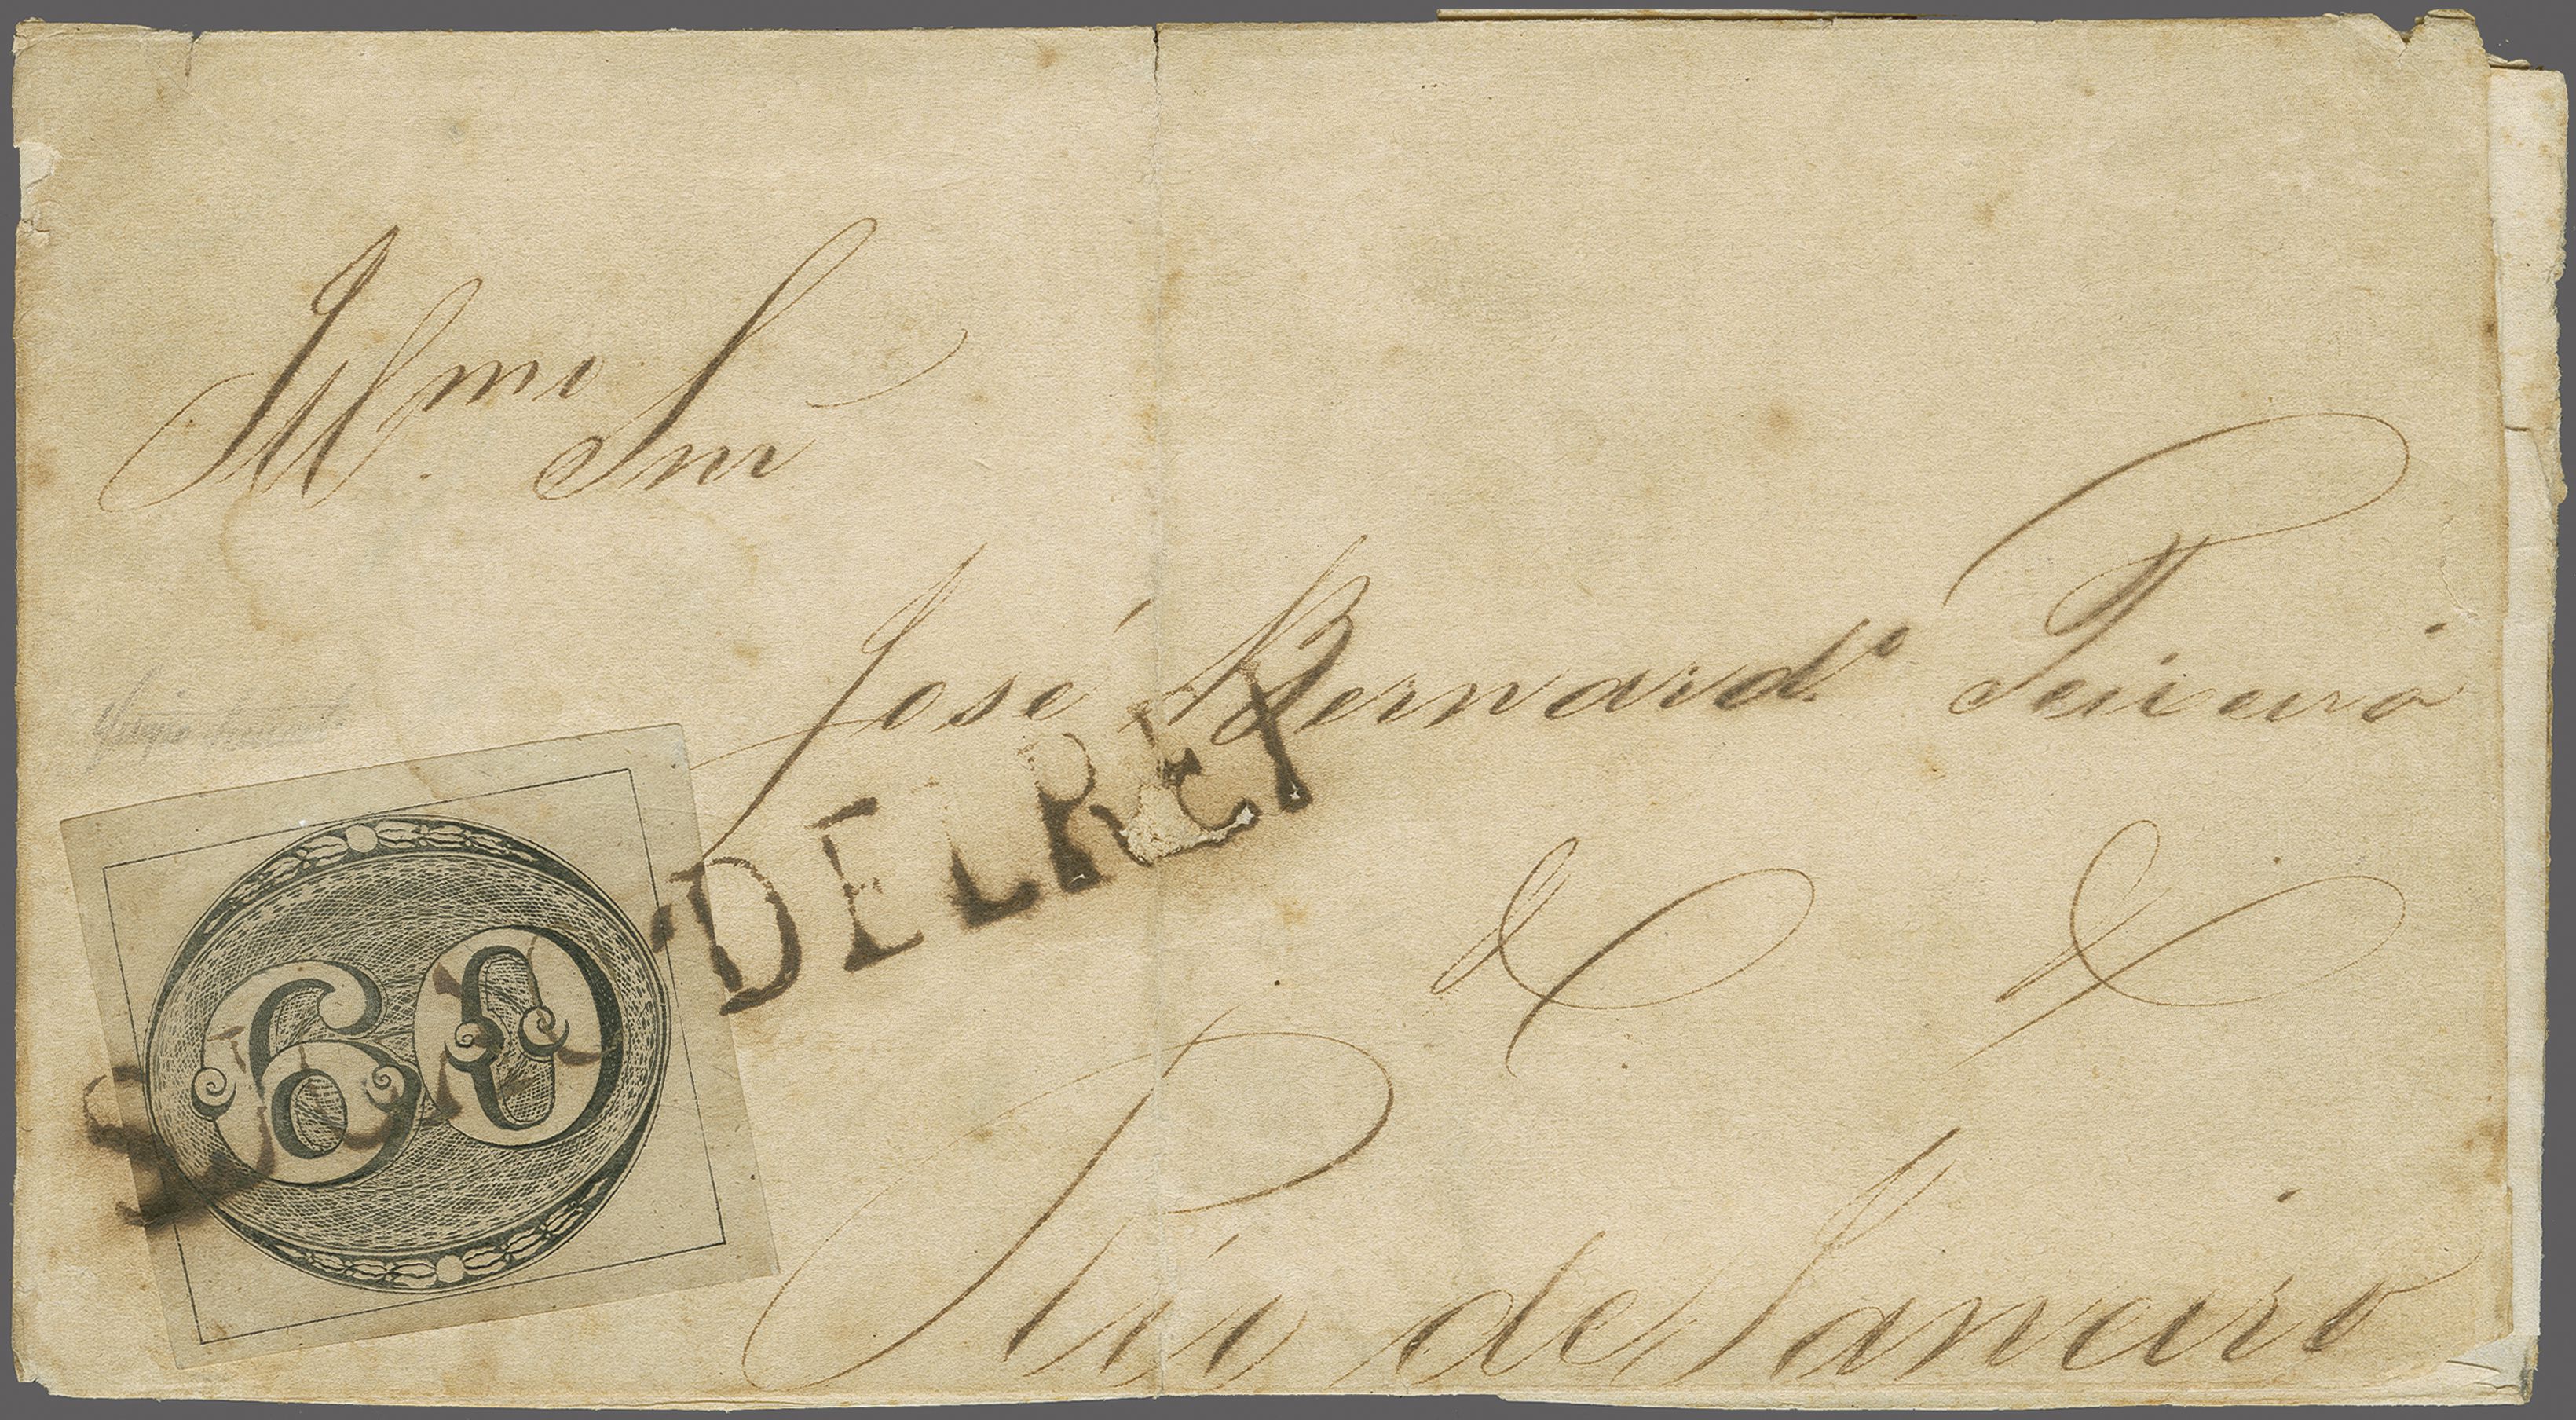 Illmo. Snr
José Bernardo Teixeira
& &
Rio de Janeiro
60
DELREY